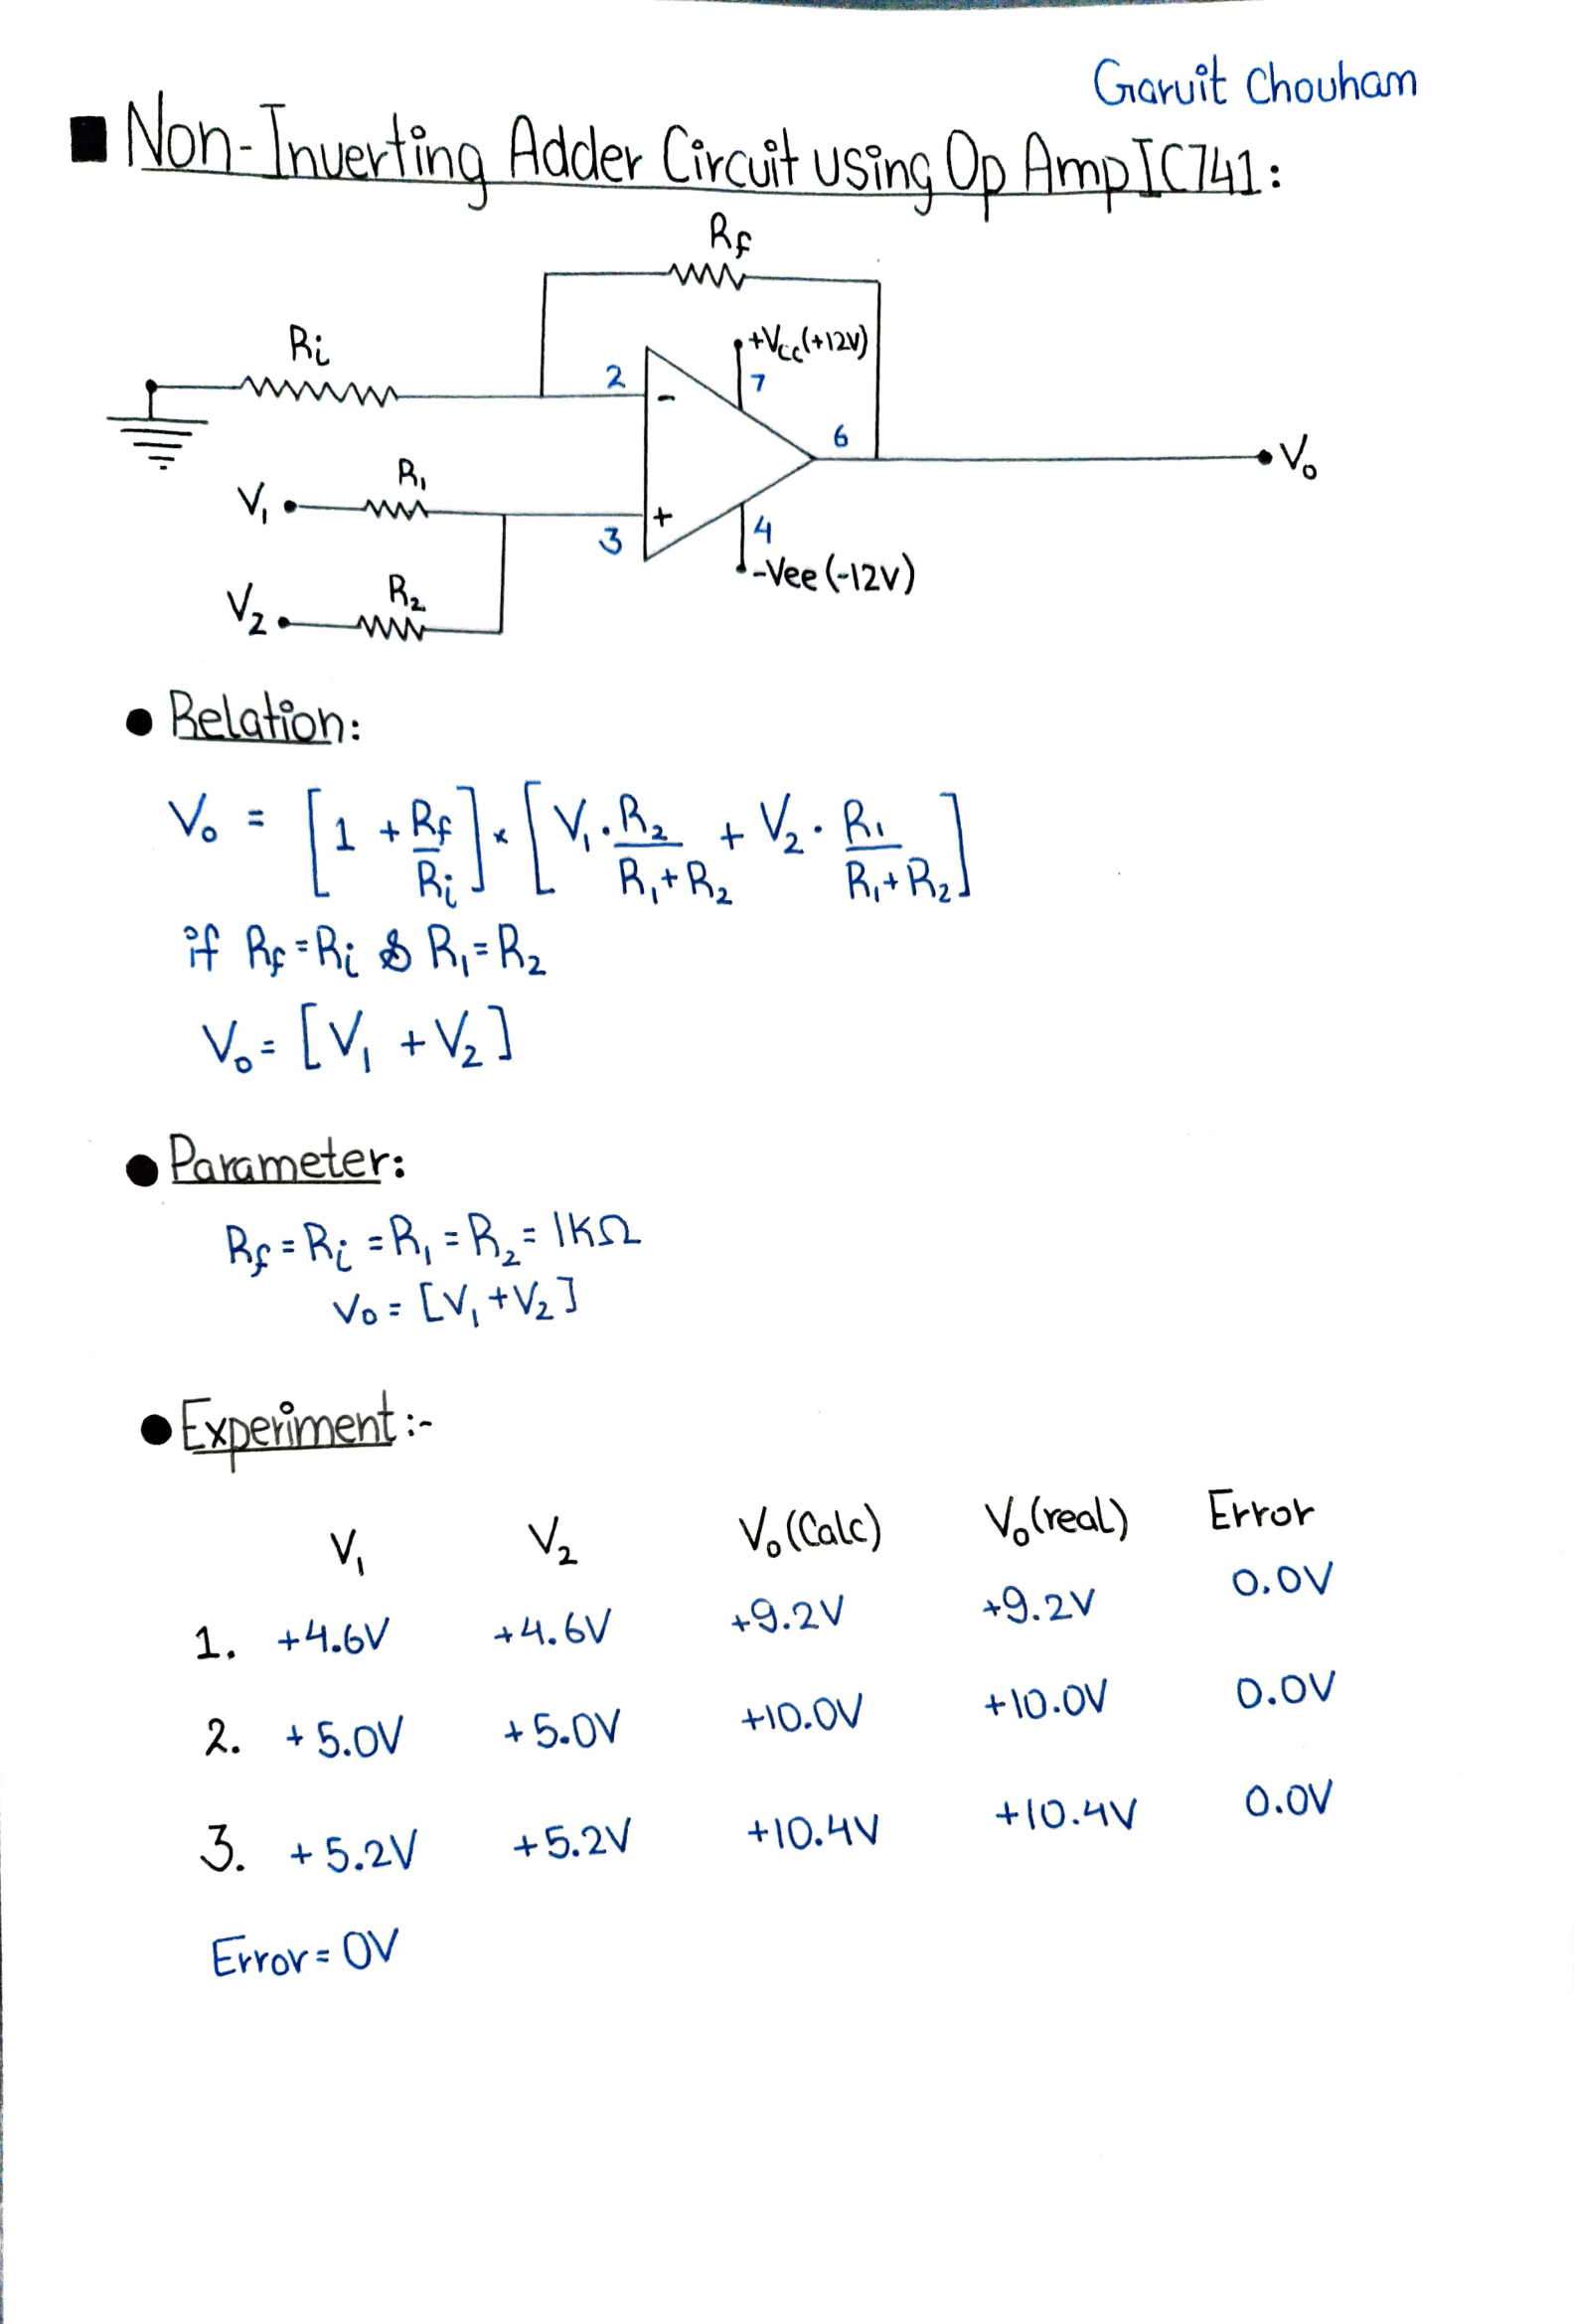 Garvit Chouham
■ Non-Inverting Adder Circuit using Op Amp IC741:
Rf
+Vcc(+12V)
Ri
2
7
-
6
V₀
R₁
V₁
+
3
4
-Vee (-12V)
R₂
V₂
● Relation:
V₀ = [1 + Rf/Ri] × [V₁ · R₂/(R₁+R₂) + V₂ · R₁/(R₁+R₂)]
if Rf = Ri & R₁ = R₂
V₀ = [V₁ + V₂]
● Parameter:
Rf = Ri = R₁ = R₂ = 1KΩ
V₀ = [V₁ + V₂]
● Experiment :-
V₁ V₂ V₀(Calc) V₀(real) Error
1. +4.6V +4.6V +9.2V +9.2V 0.0V
2. +5.0V +5.0V +10.0V +10.0V 0.0V
3. +5.2V +5.2V +10.4V +10.4V 0.0V
Error = 0V